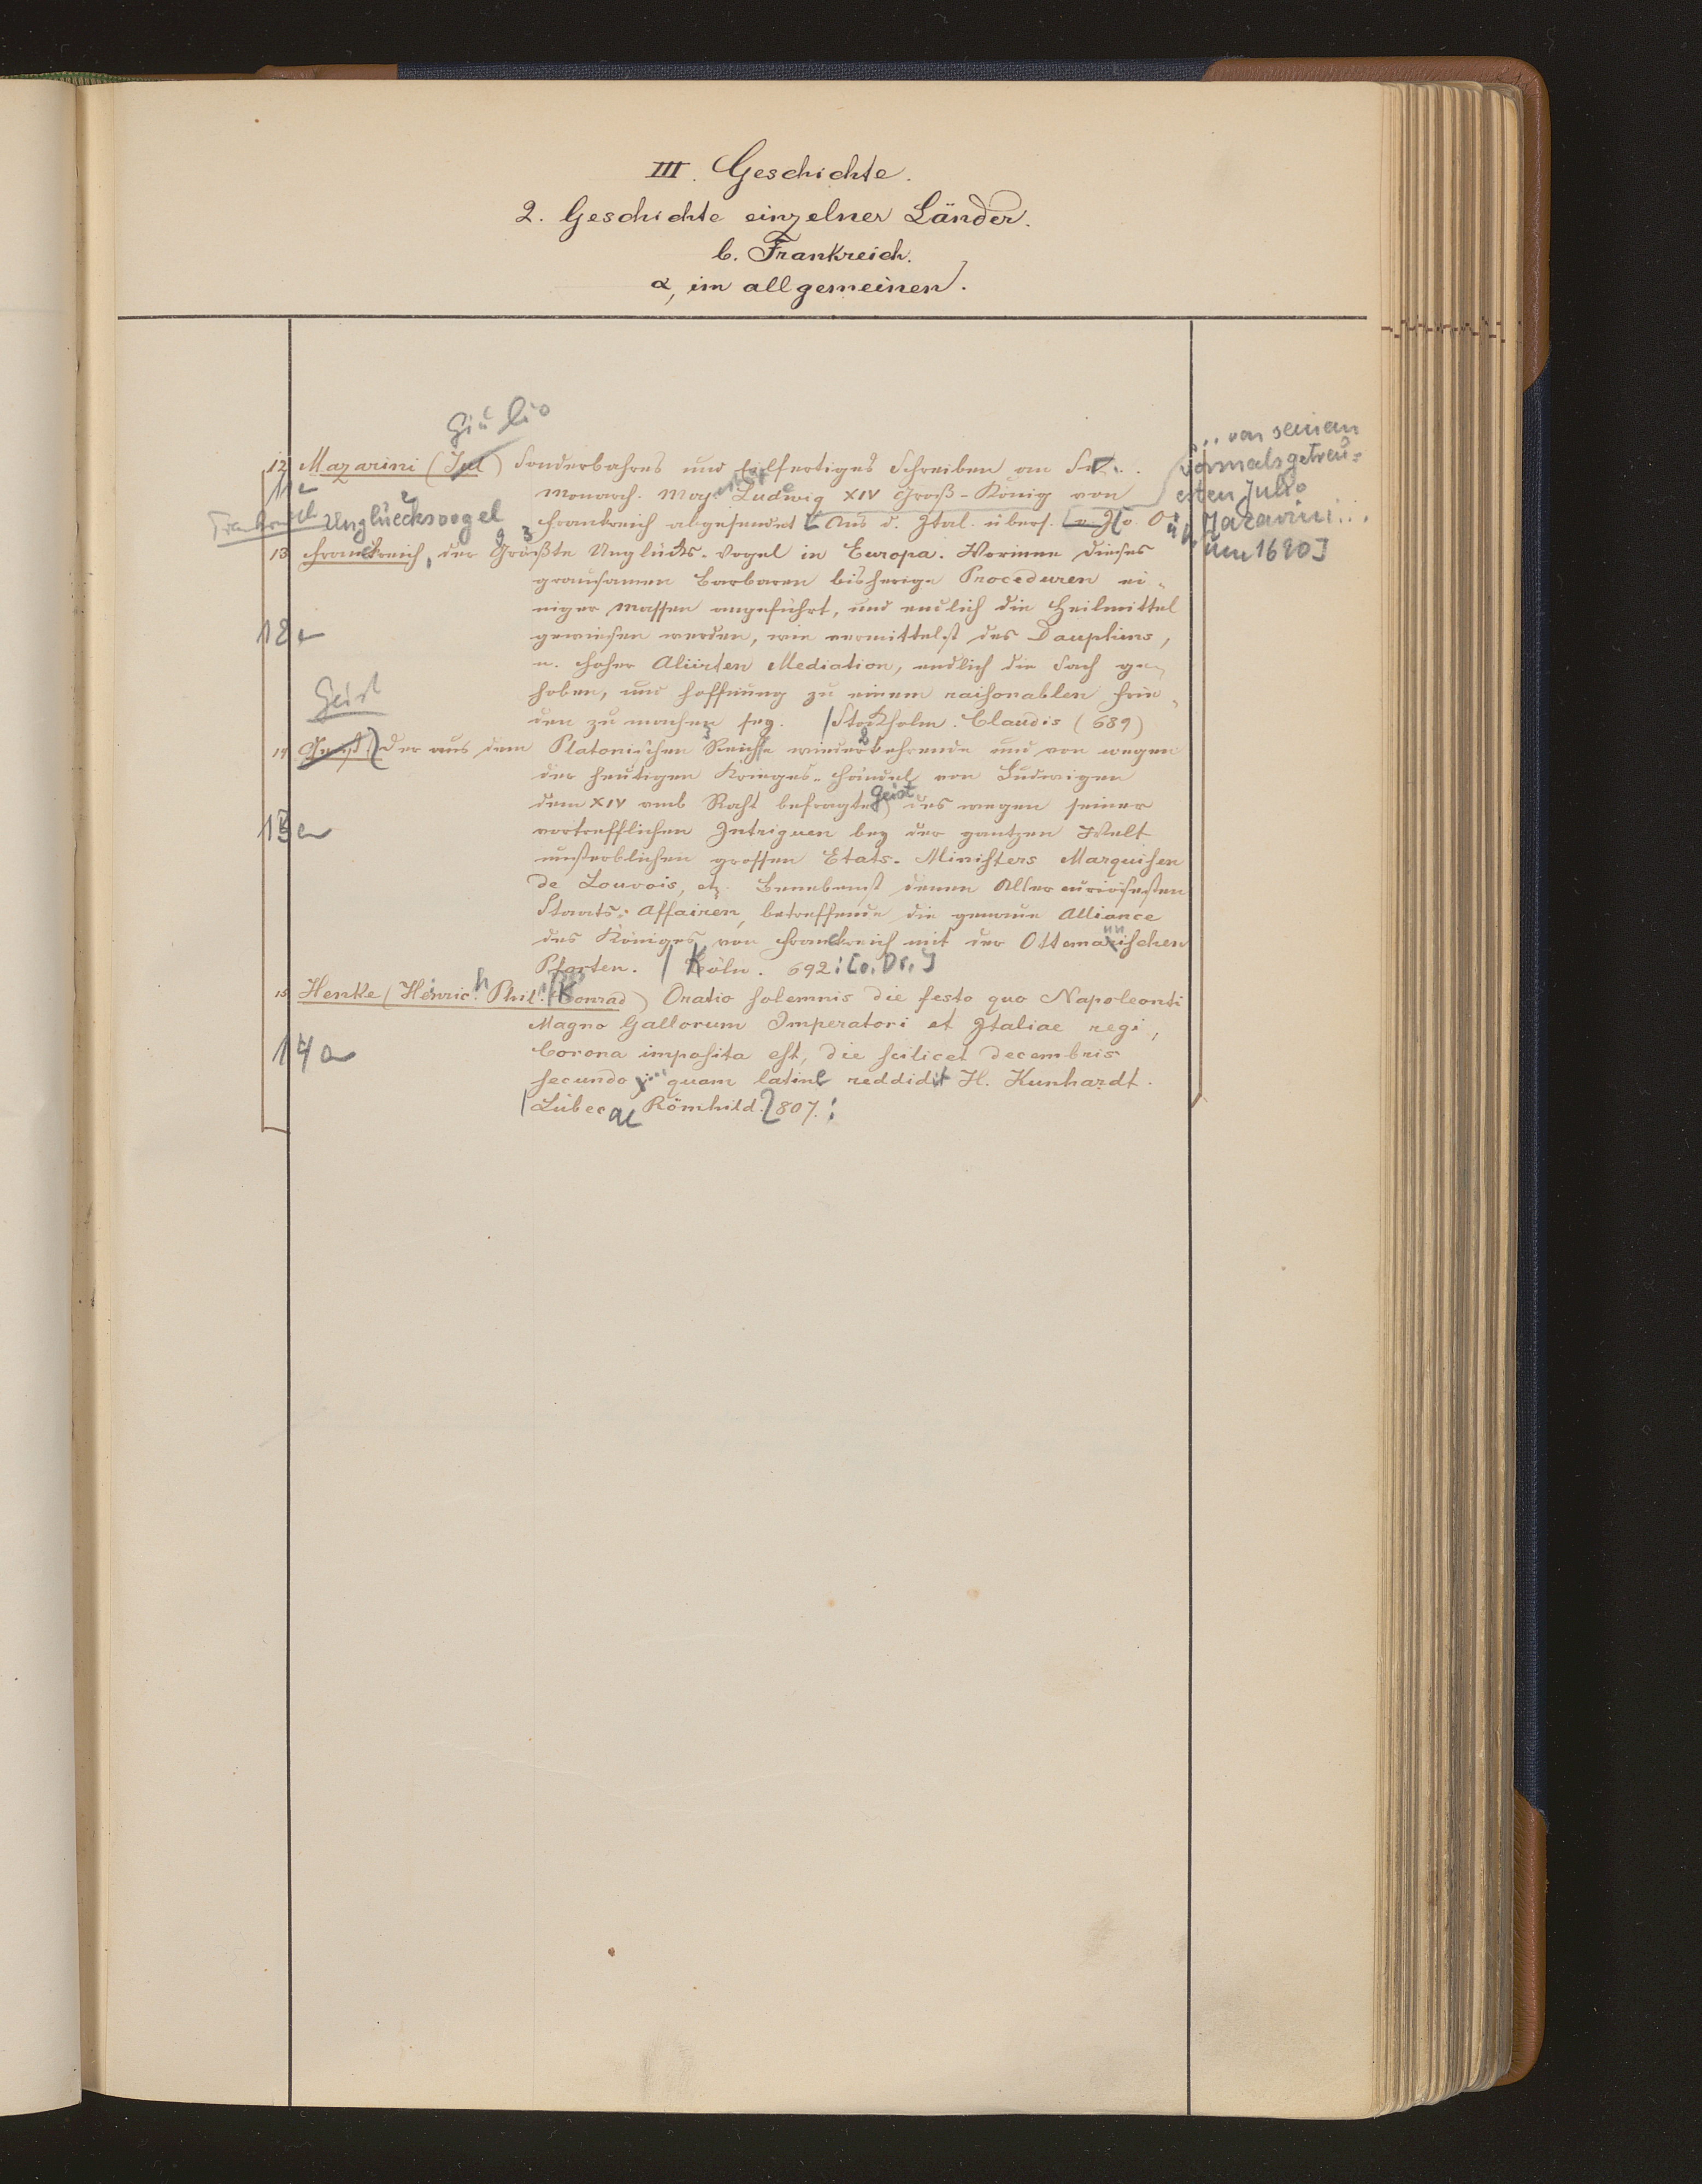 III. Geschichte.
2. Geschichte einzelner Länder.
b. Frankreich.
α, im allgemeinen.
Giulio
12 Mazarini (Jul) Sonderbahres und Eilfertiges Schreiben an Se..
... von seinem
vormalsgetreu=
esten Julio
Mazarini...
um 1690]
11a
Monarch. May. Ludewig XIV Groß-König von
Frankreich Unglücksvogel
Franckreich abgesendet [Aus d. Ital. übers. o. O
13 Franckreich, der Größte Unglücks-Vogel in Europa. Worinne dieses
grausamen Barbaren bisherige Proceduren ei-
niger Massen angeführt, und endlich die Heilmittel
12a
gewiesen werden, wie vermittelst des Dauphins,
u. hoher Aliirten Mediation, endlich die Sach ge-
hoben, und Hoffnung zu einem raisonablen Frie-
Geist
den zu machen sey. / Stockholm. Claudis (689)
14 Geist) Der aus dem Platonischen Reiche wiederkehrende und von wegen
der heutigen Krieges-Händel von Ludwigen
dem XIV umb Raht befragte Geist des wegen seiner
13a
vortrefflichen Intriguen bey der gantzen Welt
unsterblichen grossen Etats-Ministers Marquisen
de Louvois, etz. Benebenst denen Aller curiösesten
Staats-Affairen, betreffende die genaue Alliance
des Königes von Franckreich mit der Ottomannischen
Pforten. / Köln. 692: [o. Dr.]
15 Henke (Henrich Phil. Konrad) Oratio solemnis die festo quo Napoleonti
Magno Gallorum Imperatori et Italiae regi,
14a
Corona imposita est, die scilicet decembris
secundo quam latine reddidit H. Kunhardt.
/ Lübecae Römhild. 807.: